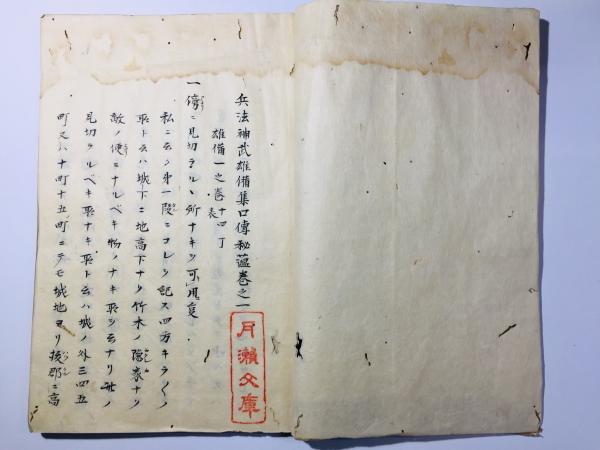 兵法神武雄備集口傳秘蘊巻之一
雄備一之巻 十四丁表
一 傍ニ見切ラルヽ所ナキヲ可用事
私ニ云第一段ニコレヲ記ス四方キラクノ
取ト云ハ城下ニ地高下ナク竹木ノ隠家ナク
敵ノ便ニナルベキ物ノナキ取ヲ云ナリ
見切ラルベキ取ナキ取ト云ハ城ノ外三四五
町又ハ十町十五町ニテモ城地ヨリ ニ高
月瀬文庫